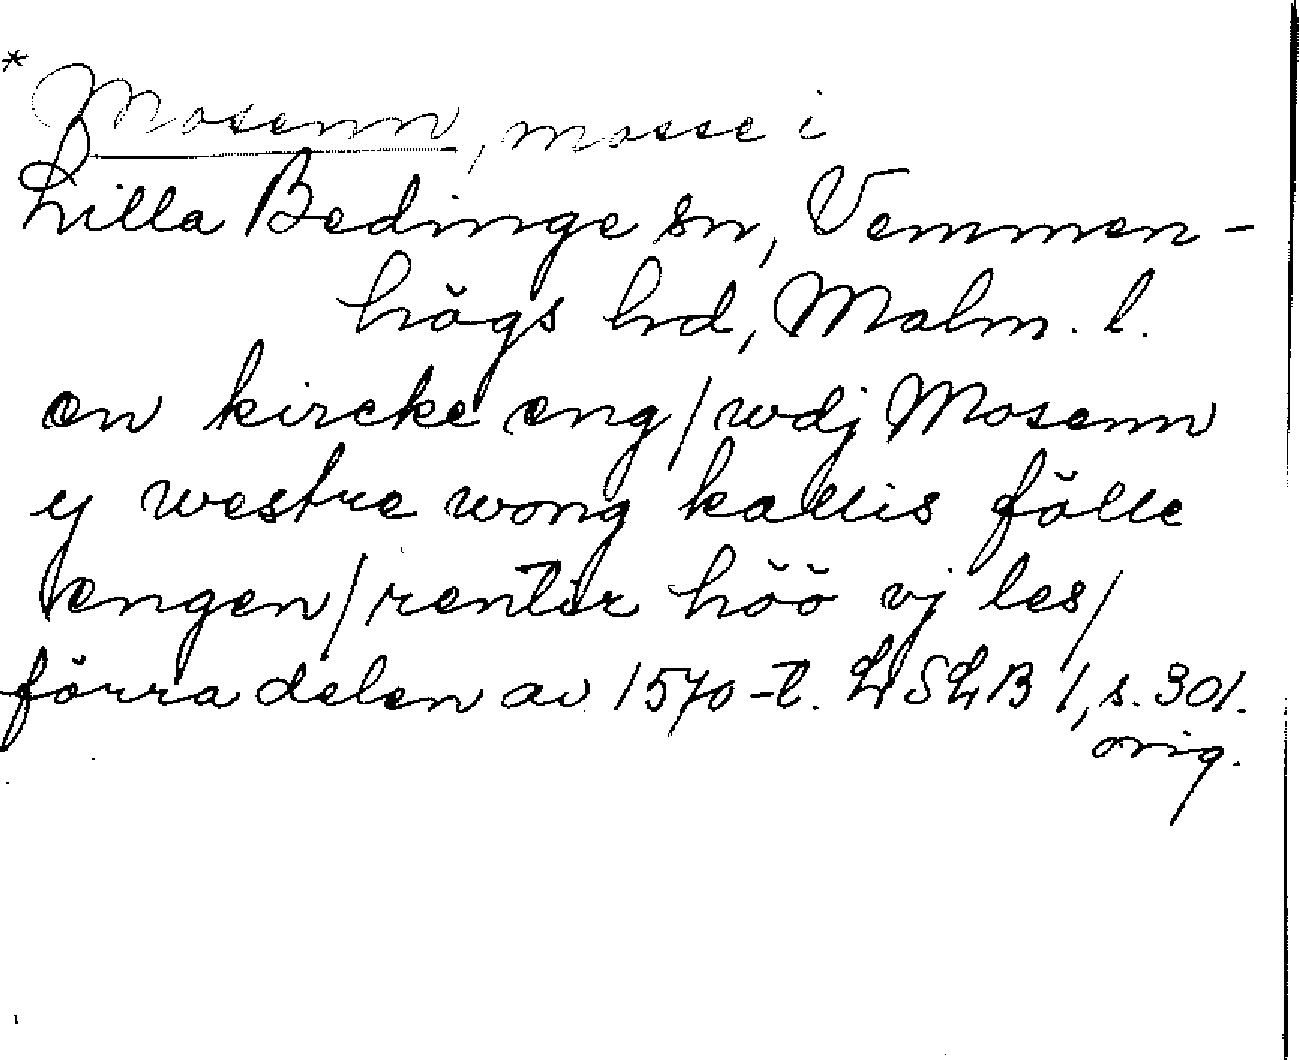 * Mosenn, mosse i
Lilla Bedinge sn, Vemmen-
högs hd, Malm. l.
en kircke eng / wdj Mosenn
y westre wong kallis fölle
engen / rentir höö vj les /
förra delen av 1570-t. LSLB 1, s. 301.
orig.